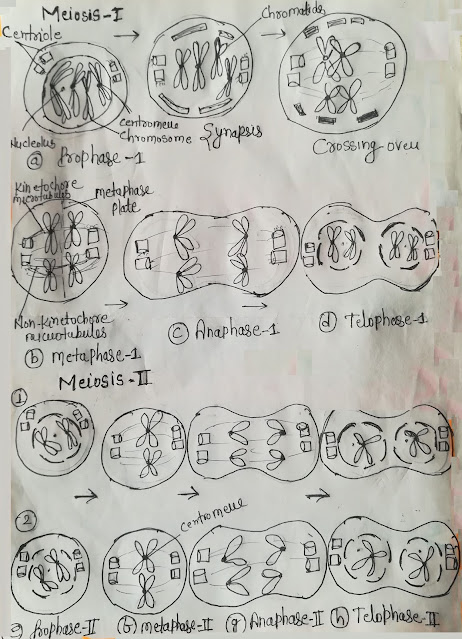 Meiosis-I
Centriole
Chromatids
Nucleolus
Centromere
Chromosome
Synapsis
Crossing over
ⓐ Prophase-1
Kinetochore
microtubules
metaphase
plate
Non-kinetochore
microtubules
ⓑ metaphase-1
ⓒ Anaphase-1
ⓓ Telophase-1
Meiosis-II
①
②
Centromere
e) Prophase-II
(b) metaphase-II
(g) Anaphase-II
(h) Telophase-II